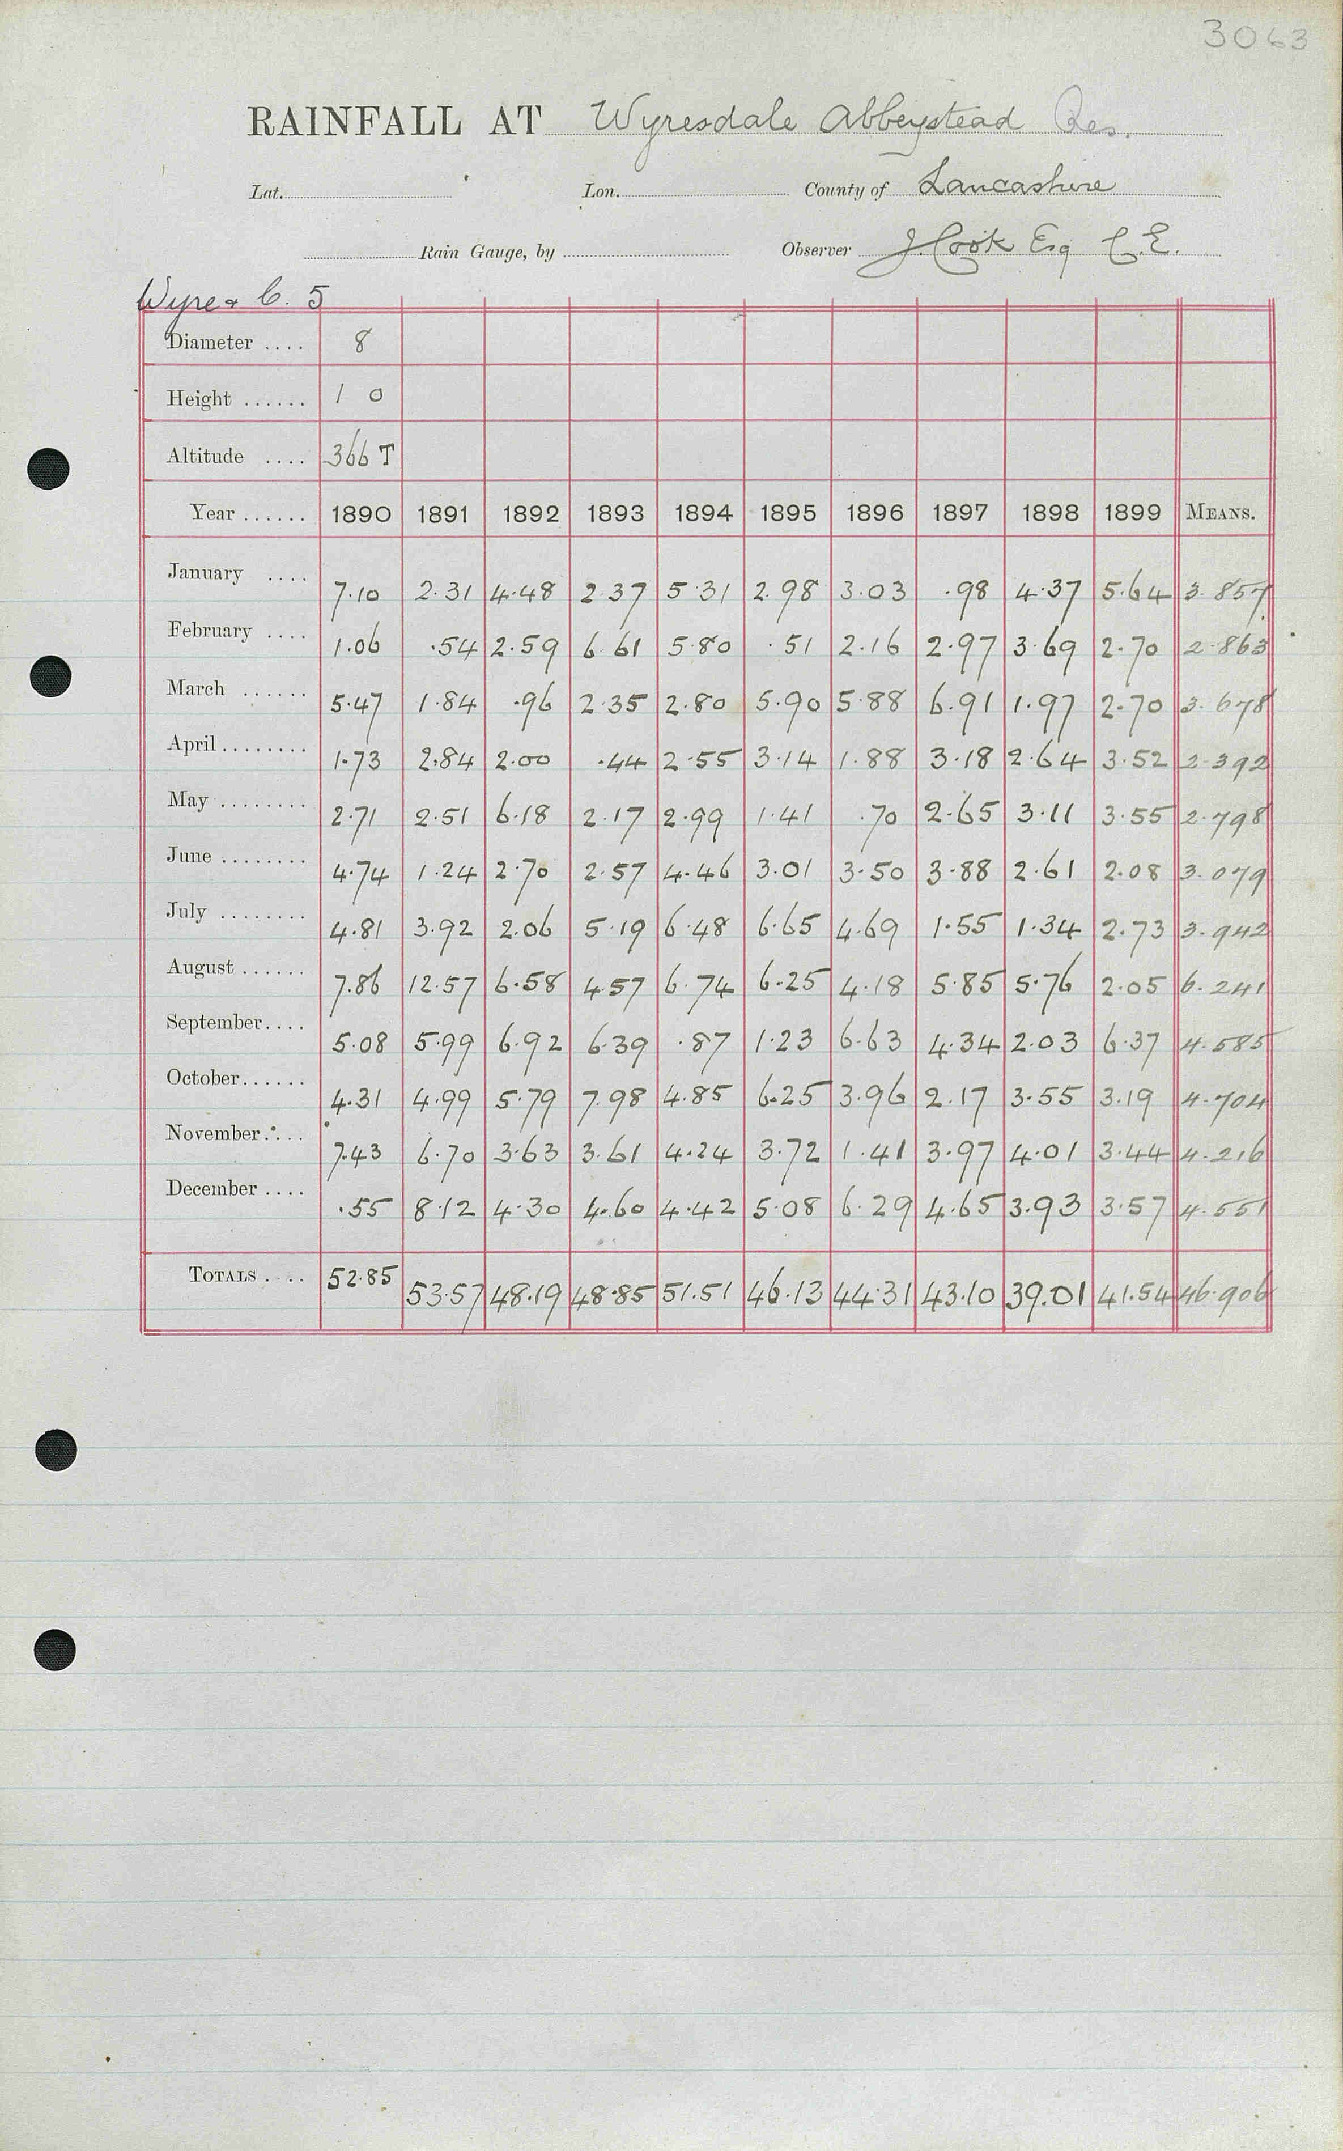 3063
RAINFALL AT Wyresdale Abbeystead Res.
Lat. Lon. County of Lancashire
Rain Gauge, by Observer J. Cook Esq C.E.
Wyre & C. 5
Diameter .... 8
Height ...... 1 0
Altitude .... 366 T
Year ...... 1890 1891 1892 1893 1894 1895 1896 1897 1898 1899 MEANS.
January .... 7.10 2.31 4.48 2.37 5.31 2.98 3.03 .98 4.37 5.64 3.857
February .... 1.06 .54 2.59 6.61 5.80 .51 2.16 2.97 3.69 2.70 2.863
March ...... 5.47 1.84 .96 2.35 2.80 5.90 5.88 6.91 1.97 2.70 3.678
April ........ 1.73 2.84 2.00 .44 2.55 3.14 1.88 3.18 2.64 3.52 2.392
May ........ 2.71 2.51 6.18 2.17 2.99 1.41 .70 2.65 3.11 3.55 2.798
June ........ 4.74 1.24 2.70 2.57 4.46 3.01 3.50 3.88 2.61 2.08 3.079
July ........ 4.81 3.92 2.06 5.19 6.48 6.65 4.69 1.55 1.34 2.73 3.942
August ...... 7.86 12.57 6.58 4.57 6.74 6.25 4.18 5.85 5.76 2.05 6.241
September.... 5.08 5.99 6.92 6.39 .87 1.23 6.63 4.34 2.03 6.37 4.585
October...... 4.31 4.99 5.79 7.98 4.85 6.25 3.96 2.17 3.55 3.19 4.704
November.... 7.43 6.70 3.63 3.61 4.24 3.72 1.41 3.97 4.01 3.44 4.216
December .... .55 8.12 4.30 4.60 4.42 5.08 6.29 4.65 3.93 3.57 4.551
TOTALS .... 52.85 53.57 48.19 48.85 51.51 46.13 44.31 43.10 39.01 41.54 46.906